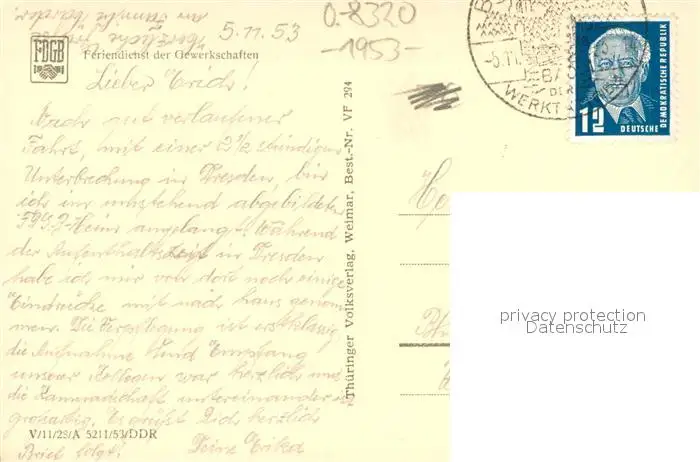 5.11.53
0-8320
-1953-
FDGB
Feriendienst der Gewerkschaften
Lieber Erich!
Nach gut verlaufener
Fahrt, mit einer 2 1/2 stündigen
Unterbrechung in Dresden, bin
ich im umstehend abgebildeten
FDGB-Heim angelangt. Während
der Aufenthaltszeit in Dresden
habe ich mir von dort noch einige
Eindrücke mit nach haus genom-
men. Die Verpflegung ist erstklassig
die Aufnahme und Empfang
unserer Kollegen war herzlich und
die Kameradschaft untereinander ist
großartig. Es grüßt Dich herzlich
Deine Erika
Brief folgt!
V/11/28/A 5211/53/DDR
Thüringer Volksverlag, Weimar, Best.-Nr. VF 294
-5.11.
BA
DER
WERKT
12
DEUTSCHE
DEMOKRATISCHE REPUBLIK
privacy protection
Datenschutz